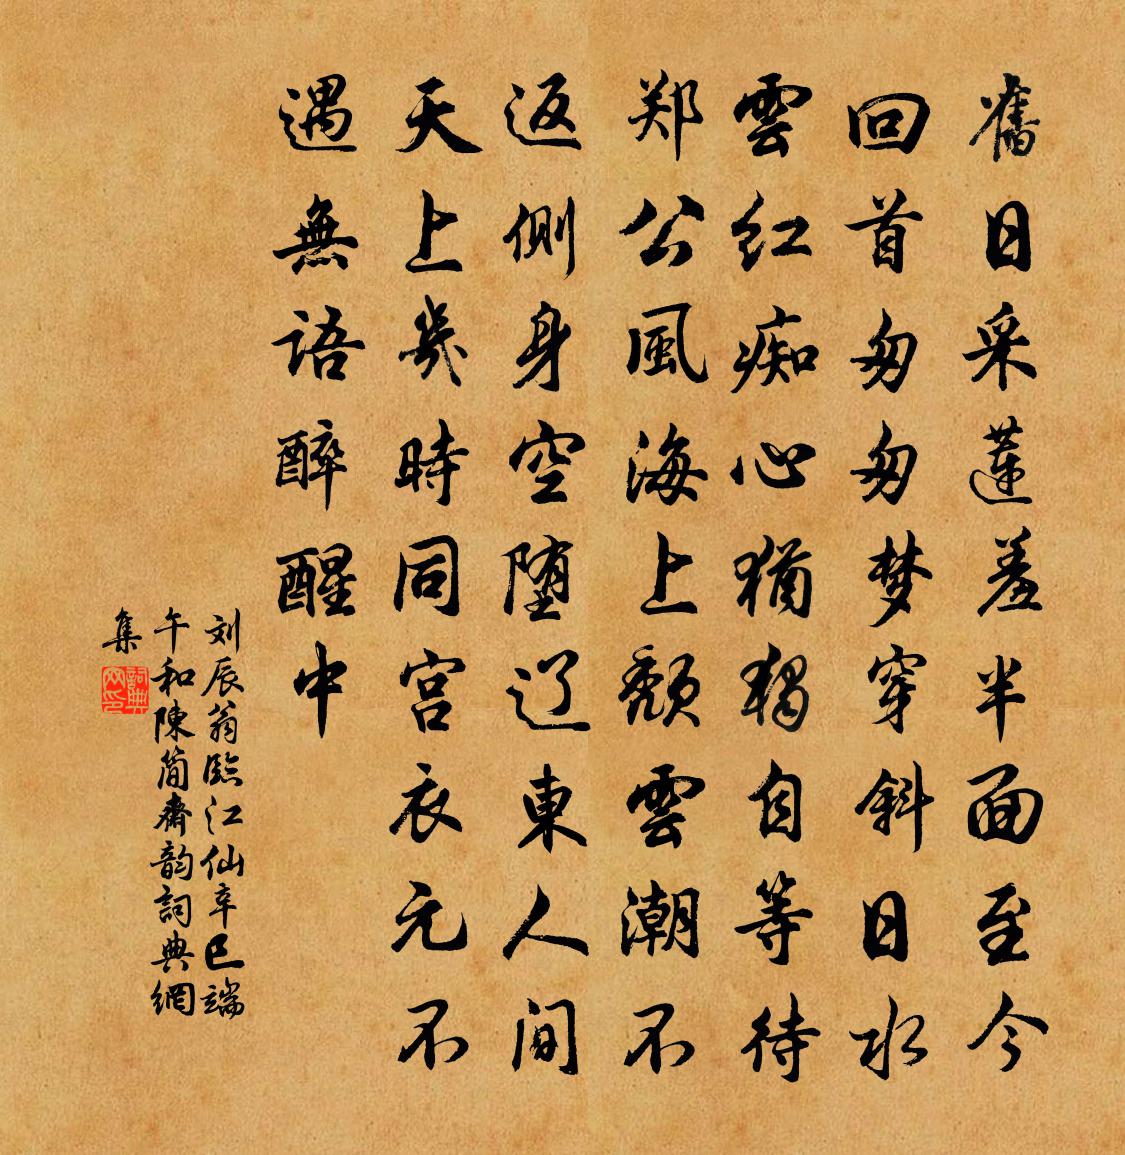 舊日采蓮羞半面至今
回首匆匆梦穿斜日水
雲红痴心猶獨自等待
郑公風
海上颓雲潮不
返側身空堕辽東人间
天上幾時同宫衣元不
遇無語醉醒中
刘辰翁臨江仙辛巳端
午和陳简齋韵詞典網
集
詞典網印